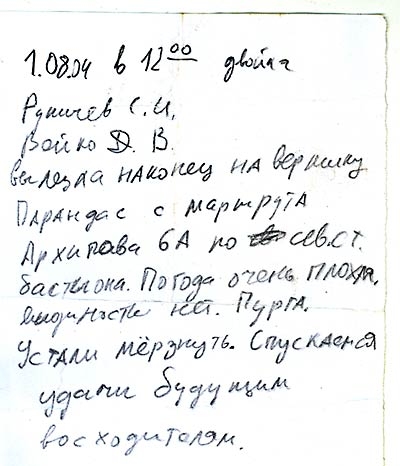 1.08.04 в 12 00 двойка
Руничев С.И,
Бойко Д. В.
вылезла наконец на вершину
Парандас с маршрута
Архипова 6А по сев.ст.
бастиона. Погода очень плохая,
видимости нет. Пурга.
Устали мёрзнуть. Спускаемся
удачи будущим
восходителям.